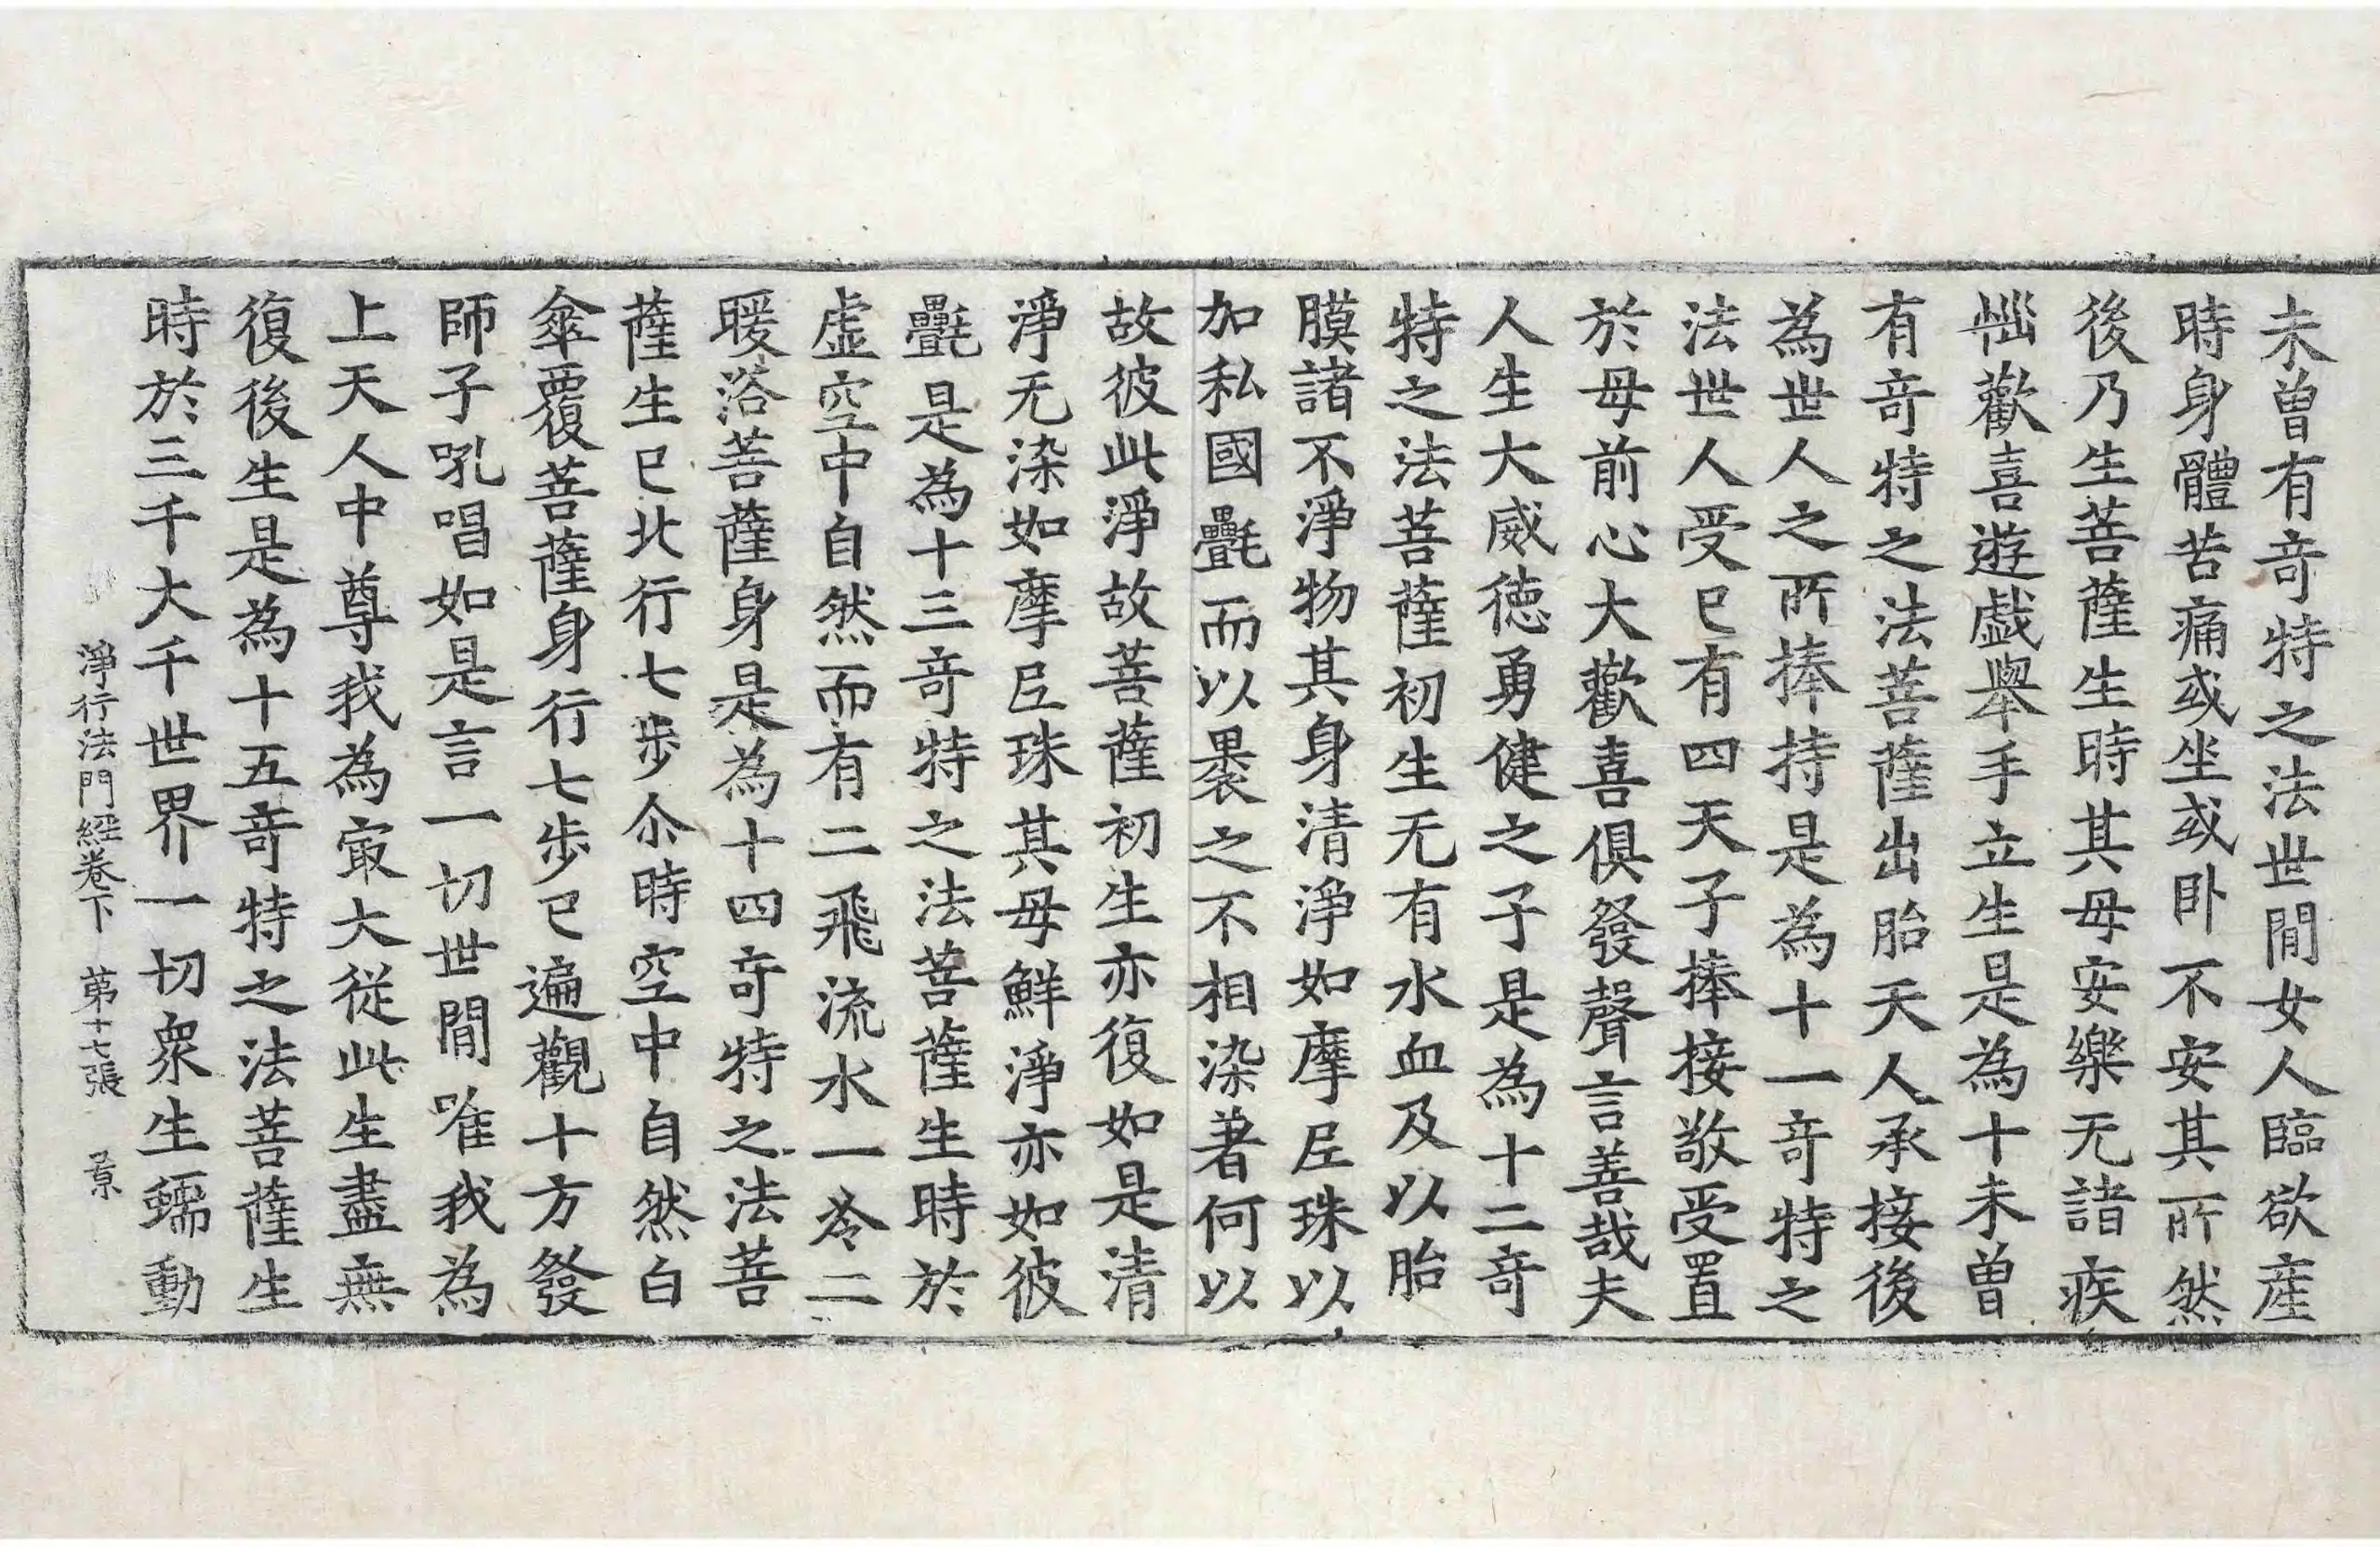 未曾有奇特之法世間女人臨欲産
時身體苦痛或坐或卧不安其所然
後乃生菩薩生時其母安樂无諸疾
惱歡喜遊戲舉手立生是為十未曾
有奇特之法菩薩出胎天人承接後
為世人之所捧持是為十一奇特之
法世人受已有四天子捧接敬受置
於母前心大歡喜俱發聲言善哉夫
人生大威徳勇健之子是為十二奇
特之法菩薩初生无有水血及以胎
膜諸不淨物其身清淨如摩尼珠以
加私國㲲而以褁之不相染著何以
故彼此淨故菩薩初生亦復如是清
淨无染如摩尼珠其母鮮淨亦如彼
㲲是為十三奇特之法菩薩生時於
虛空中自然而有二飛流水一冷二
暖浴菩薩身是為十四奇特之法菩
薩生已北行七步尒時空中自然白
傘覆菩薩身行七步已遍觀十方發
師子吼唱如是言一切世間唯我為
上天人中尊我為㝡大從此生盡無
復後生是為十五奇特之法菩薩生
時於三千大千世界一切衆生蠕動
淨行法門經卷下 第十七張 景